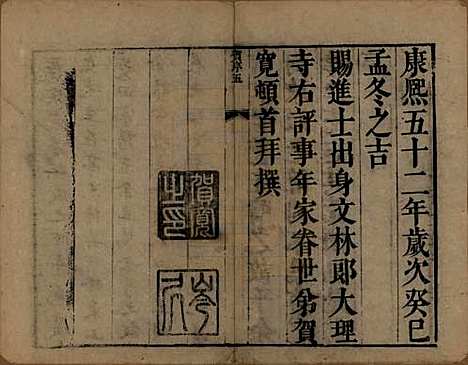 康熙五十二年歲次癸巳
孟冬之吉
賜進士出身文林郎大理
寺右評事年家眷世弟賀
寬頓首拜撰
賀寬之印